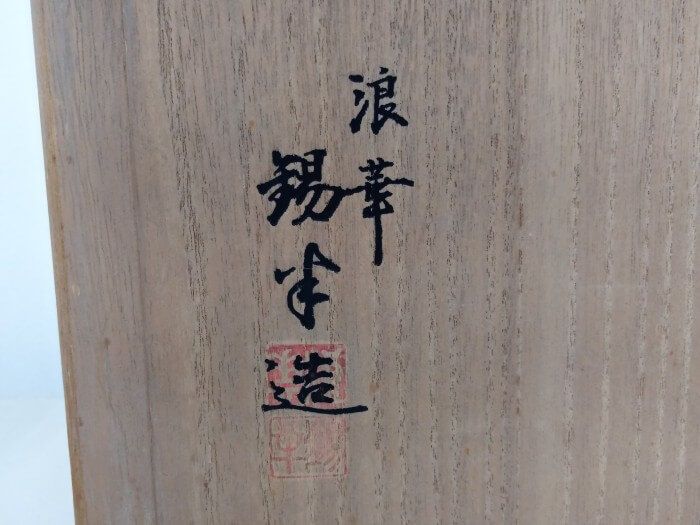 浪華
錫半造